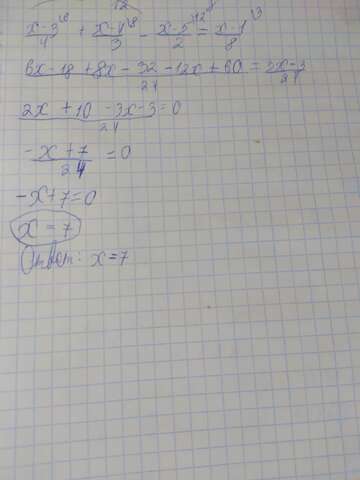 x-3⁽⁶/4 + x-4⁽⁸/3 - x-5⁽¹²/2 = x-1⁽³/8
6x-18+8x-32-12x+60/24 = 3x-3/24
2x+10-3x-3/24=0
-x+7/24=0
-x+7=0
x=7
Ответ: x=7